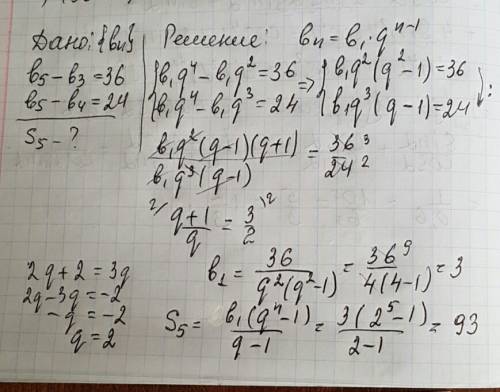 Дано: {bn}
b5 - b3 = 36
b5 - b4 = 24
S5 - ?
Решение: bn = b1 · q^(n-1)
{ b1q^4 - b1q^2 = 36 => { b1q^2(q^2-1) = 36
{ b1q^4 - b1q^3 = 24 { b1q^3(q-1) = 24 ↓:
b1q^2(q-1)(q+1) / b1q^3(q-1) = 36 3 / 24 2
2/ q+1 / q = 3 /2 / 2
2q + 2 = 3q
2q - 3q = -2
-q = -2
q = 2
b1 = 36 / q^2(q^2-1) = 36 9 / 4(4-1) = 3
S5 = b1(q^n-1) / q-1 = 3(2^5-1) / 2-1 = 93